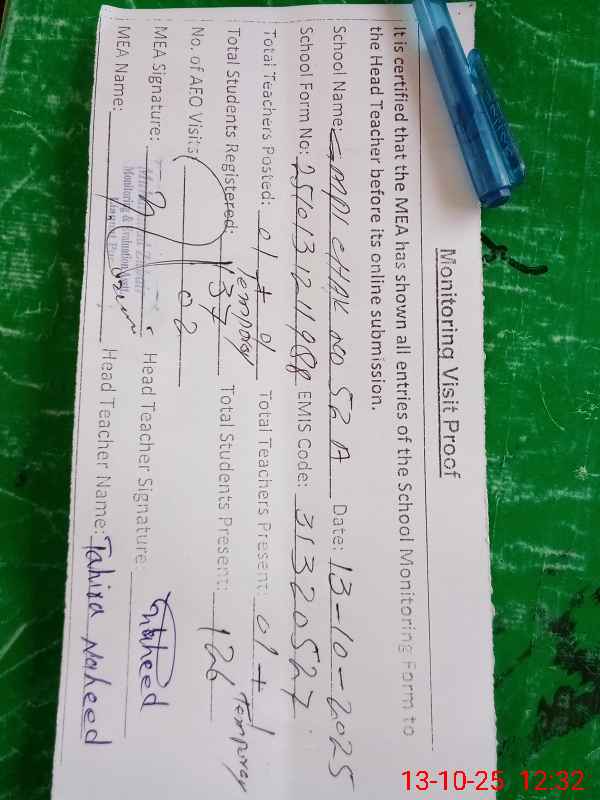 Monitoring Visit Proof
It is certified that the MEA has shown all entries of the School Monitoring Form to
the Head Teacher before its online submission.
School Name: GMPI CHAK NO 52 A Date: 13-10-2025
School Form No: EMIS Code: 31320527
Total Teachers Posted: 01 + 01 Temporary Total Teachers Present: 01 + 1 Temporary
Total Students Registered: 137 Total Students Present: 126
No. of AEO Visits: 02
MEA Signature: Head Teacher Signature: Naheed
MEA Name: Head Teacher Name: Tahira Naheed
Monitoring & Evaluation
13-10-25 12:32